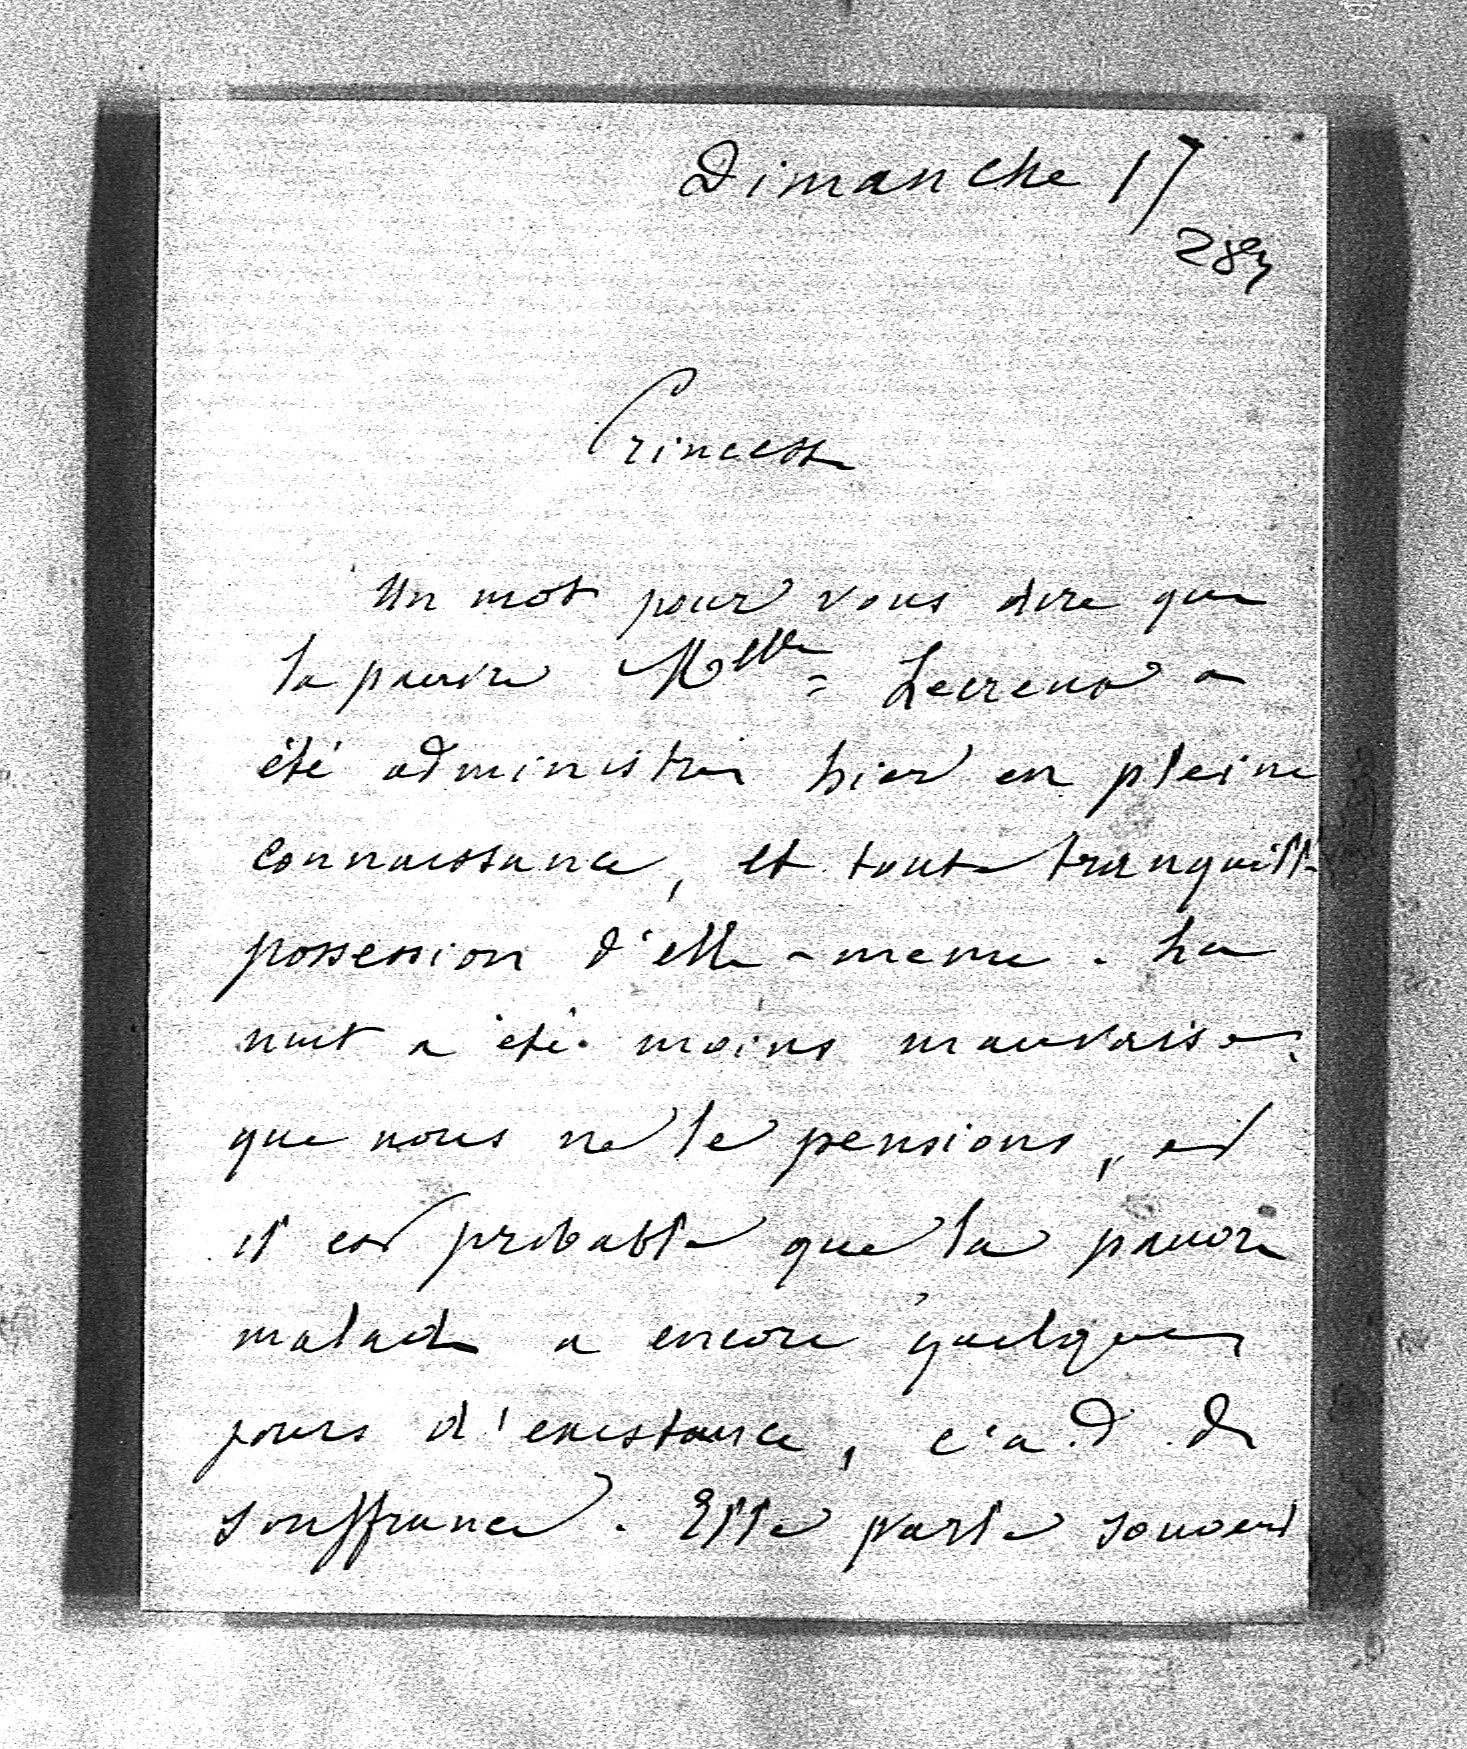 Dimanche 17
Princesse
Un mot pour vous dire que
la pauvre Melle
été administrée hier en pleine
connaissance, et toute tranquille
possession d'elle-meme. La
nuit a été moins mauvaise
que nous ne le pensions, et
il est probable que la pauvre
malade a encore quelques
jours d'existance, c'a.d. de
souffrance. Elle parle souvent